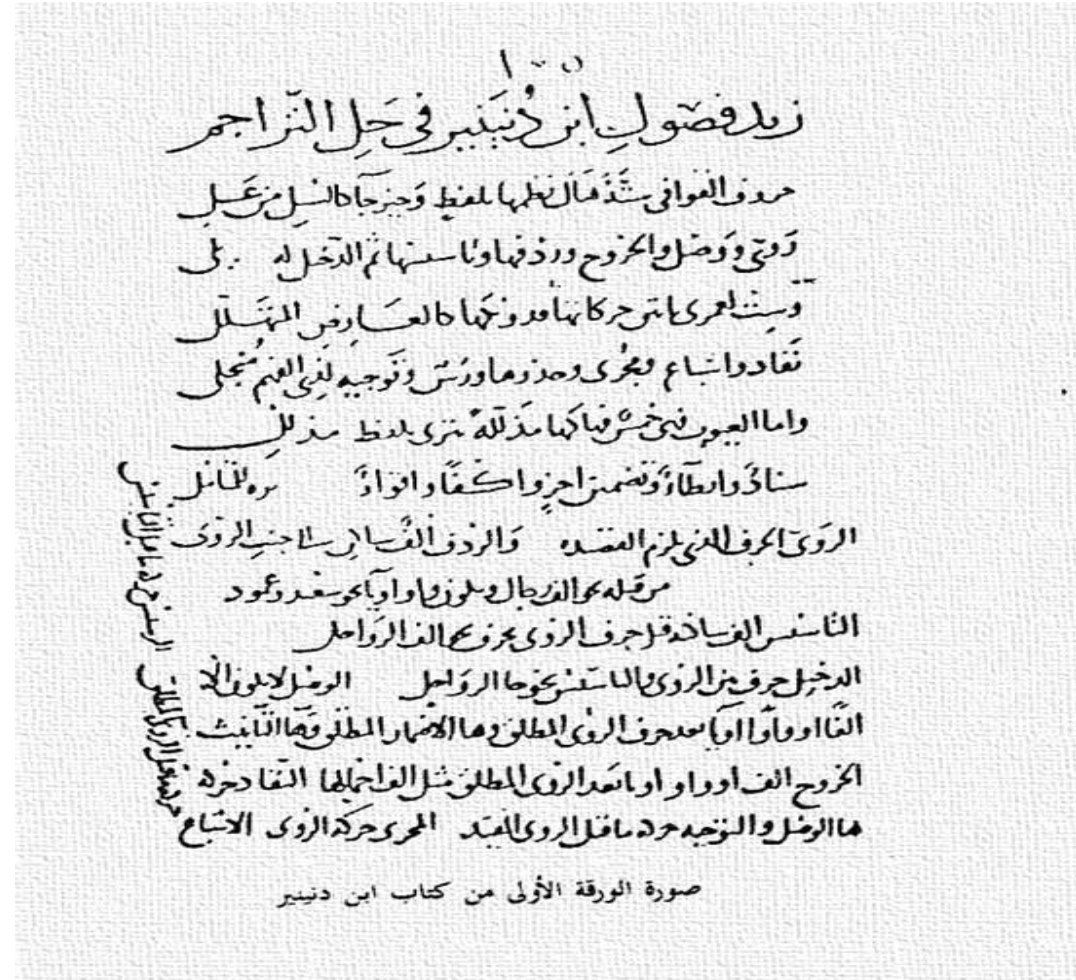 زبد فصول ابن دُنَينير في حَل التراجم
حروف القوافي ستة هاك نظمها بلفظ وجيز جاء كالنسل من عسل
رَوِيّ ووصل والخروج وردفها وتاسيسها ثم الدخيل له يلى
وست لعمرى هاتى حركاتها كالعارض المتهلل
نَفاد واشباع ومجرى وحذوها ورسّ وتوجيه لذى الفهم مُنجلى
واما العيوب فهى خمس فهاكها بلفظ
سنادٌ وايطاءٌ وتضمين اجز واكفاً واقواءً
الروىّ الحرف الذى يلزم القصيده والردف الف ساكن الروى
من قبله نحو الف رجال وتكون واو اويا نحو سعيد وعمود
التاسيس الف ساكنه قبل حرف الروى بحرف نحو الف الرواحل
الدخيل حرف بين الروى والتاسيس نحو حا الرواحل الوصل لايكون الا
الفًا او واوًا اويا بعد حرف الروى المطلق وها الاضمار المطلق وها التانيث
الخروج الف او واو او يا بعد الروى المطلق مثل الف النفاد حركه
ها الوصل والتوجيه حركه ما قبل الروى المقيد المجرى حركة الروى الاشباع
الرس حركه ما قبل التاسيس
صورة الورقة الأولى من كتاب ابن دنينير